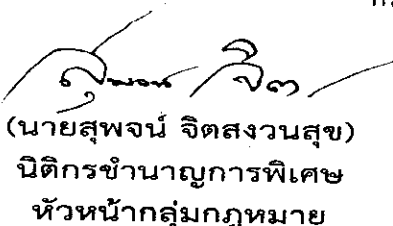 (นายสุพจน์ จิตสงวนสุข)
นิติกรชำนาญการพิเศษ
หัวหน้ากลุ่มกฎหมาย